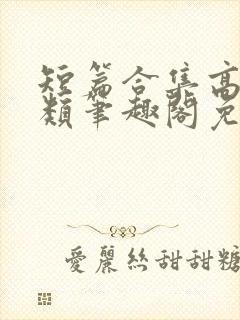 短篇合集高
類筆趣閣免
愛麗絲甜甜糖